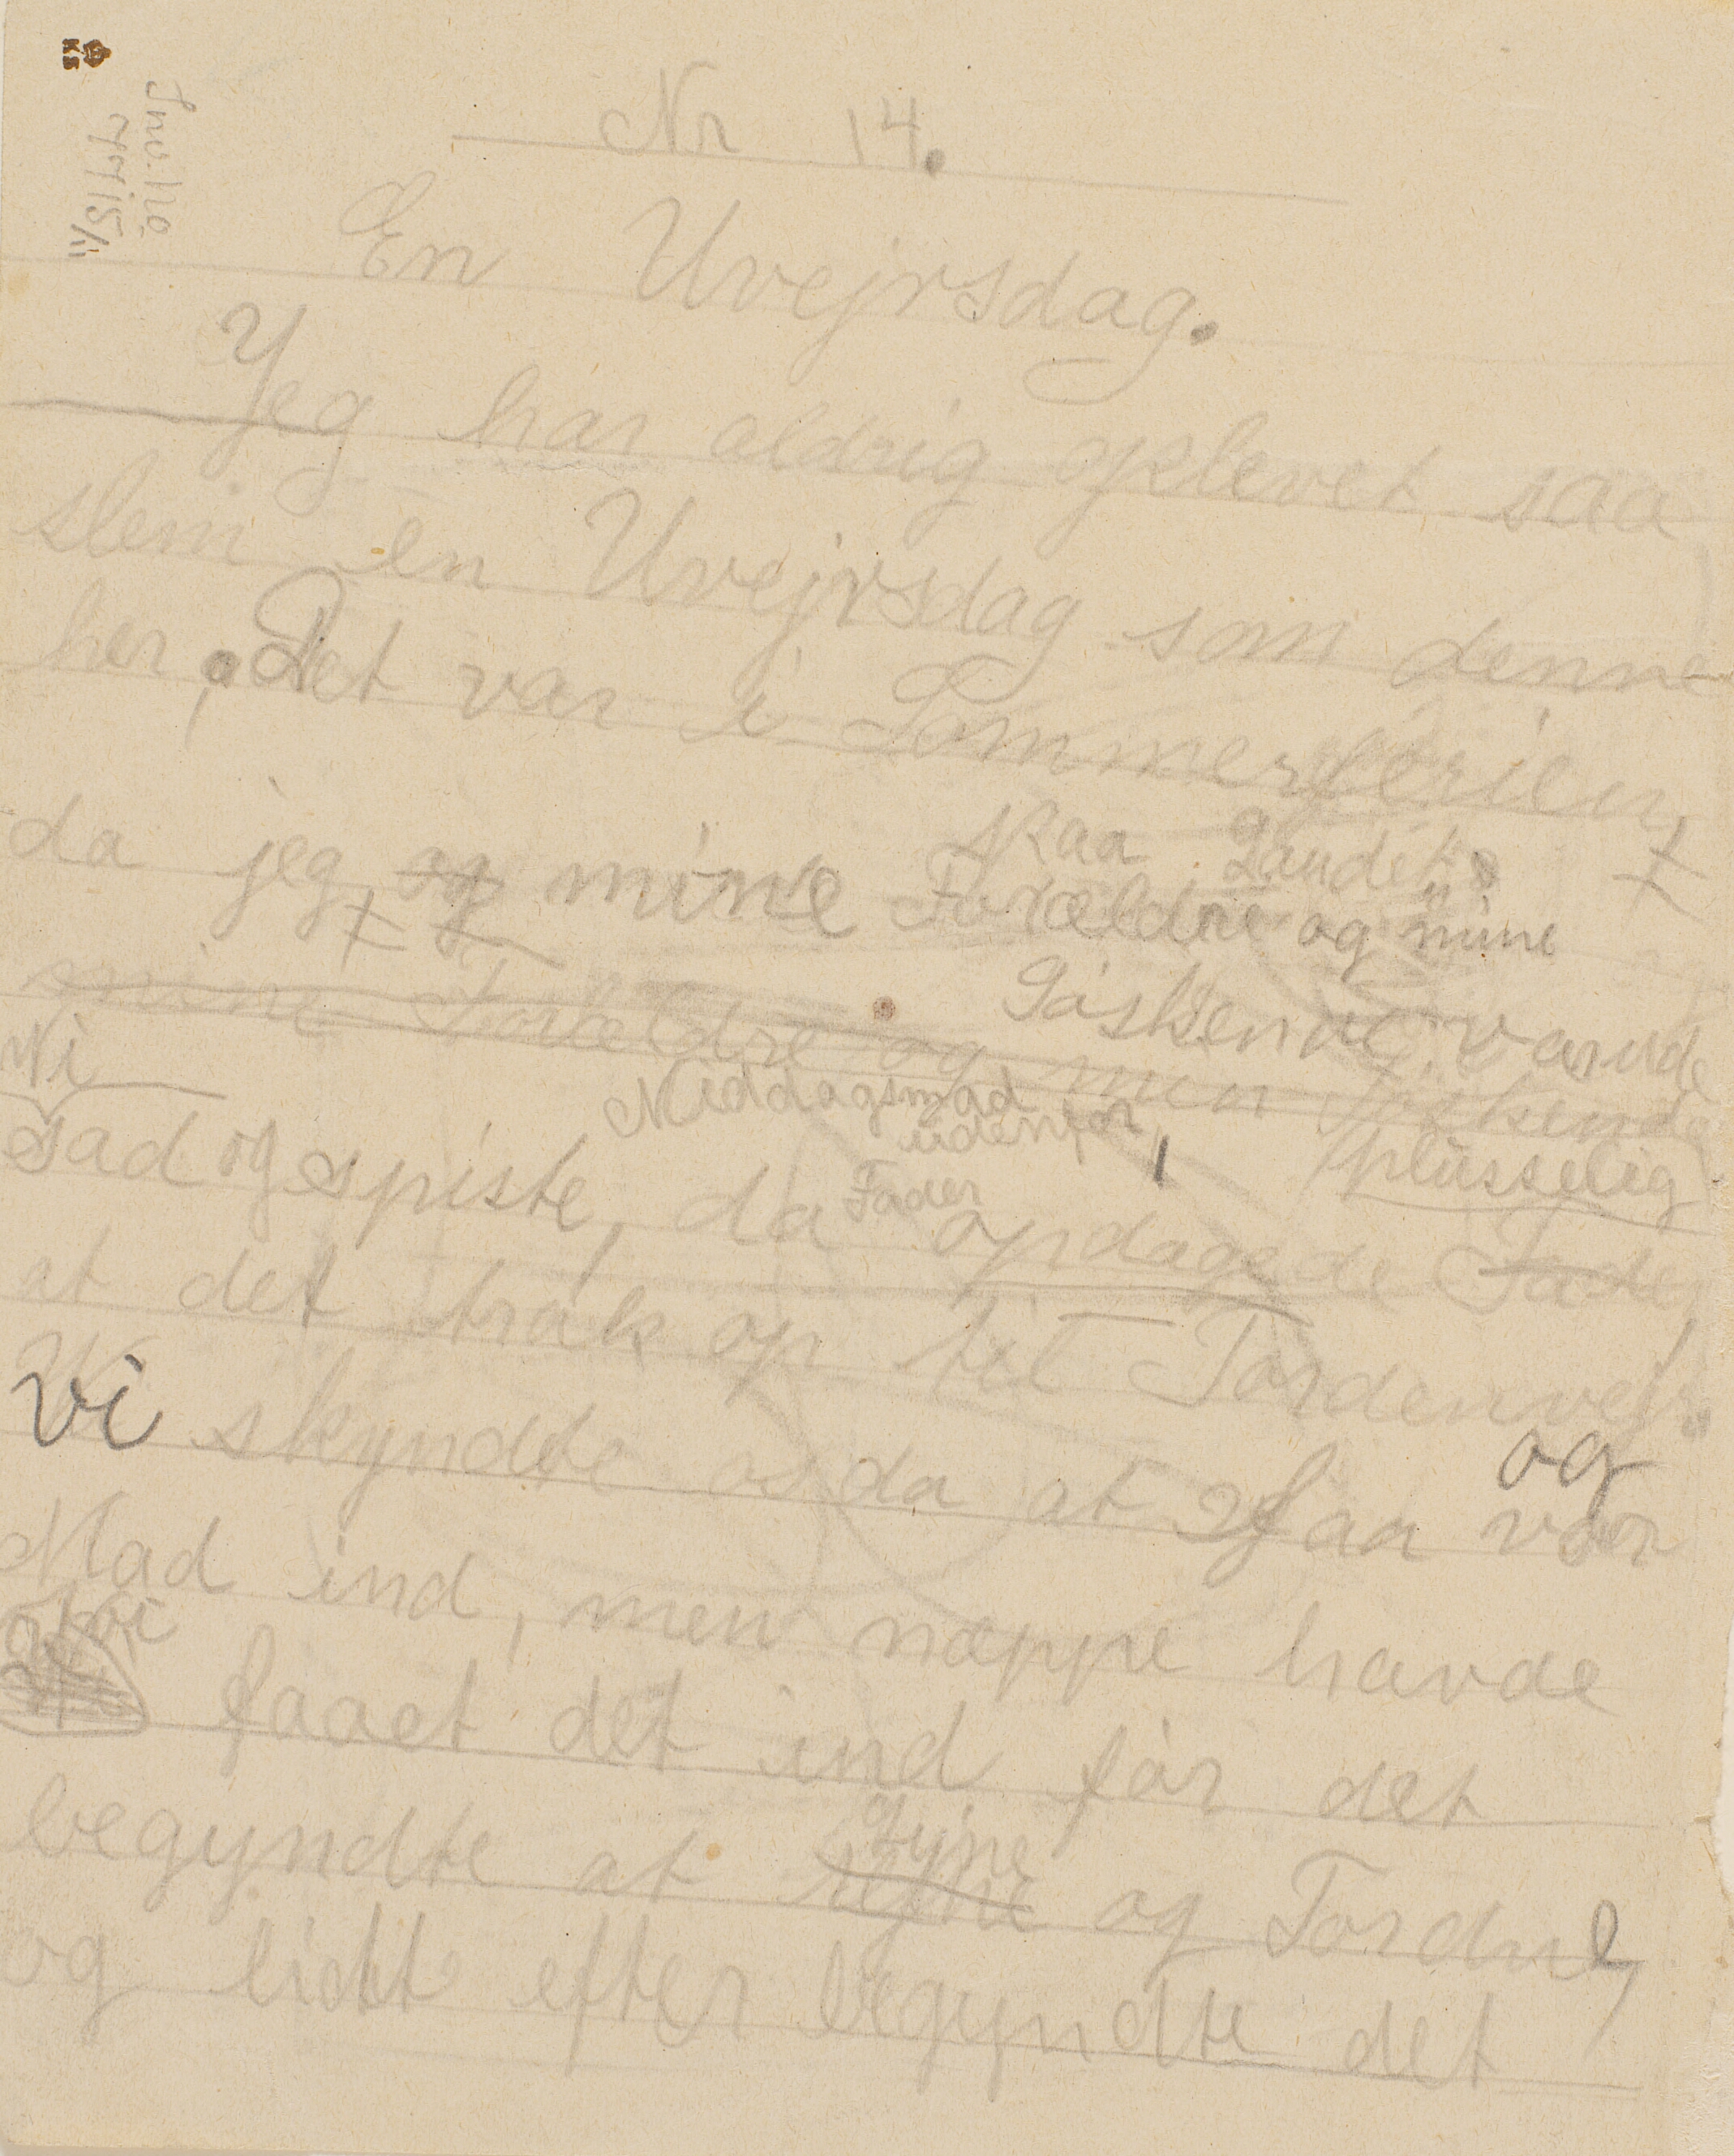 Nr 14.
En Uvejrsdag.
Jeg har aldrig oplevet saa
slem en Uvejrsdag som denne
her, Det var i Sommerferien,
paa Landet.
da jeg og mine Forældre og mine
Söskende var ude
mine Forældre og min Söskende
Vi
Middagsmad
udenfor, plusselig
sad og spiste, da Fader opdagede Fader
at det trak op til Tordenvejr.
Vi skyndte os da at faa vor
og
Mad ind, men næppe havde
vi
faaet det ind för det
begyndte at regne og Tordne,
Lyne
og lidt efter begyndte det